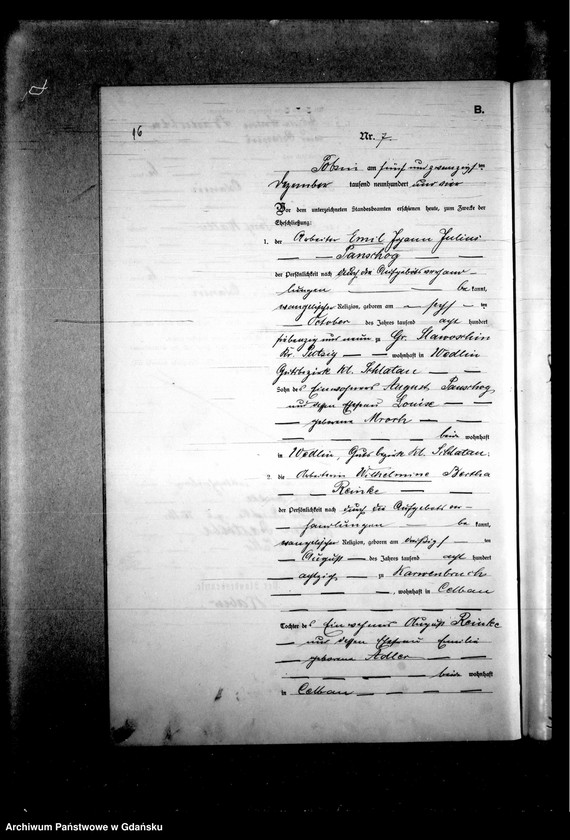 B.
16
Nr. 7.
am fünf und zwanzigsten
Dezember tausend neunhundert und vier
Vor dem unterzeichneten Standesbeamten erschienen heute, zum Zwecke der
Eheschließung:
1. der Arbeiter Emil Johann Julius
Panschog
der Persönlichkeit nach durch die Aufgebotsverhand-
lungen be kannt,
evangelischer Religion, geboren am ten
October des Jahres tausend acht hundert
siebenzig und neun zu Gr. Starsin
Kr. Putzig wohnhaft in Wedlin
Gutsbezirk Kl. Schlatau
Sohn des Einwohners August Panschog
und dessen Ehefrau Louise
geborene Mroch
beide wohnhaft
in Wedlin, Gutsbezirk Kl. Schlatau;
2. die Arbeiterin Wilhelmine Bertha
Reinke
der Persönlichkeit nach durch die Aufgebotsver-
handlungen be kannt,
evangelischer Religion, geboren am dreißigsten
August des Jahres tausend acht hundert
achtzig zu Karwenbruch
, wohnhaft in Celbau
Tochter des Einwohners August Reinke
und dessen Ehefrau Emilie
geborene Adler
beide wohnhaft
in Celbau
Archiwum Państwowe w Gdańsku